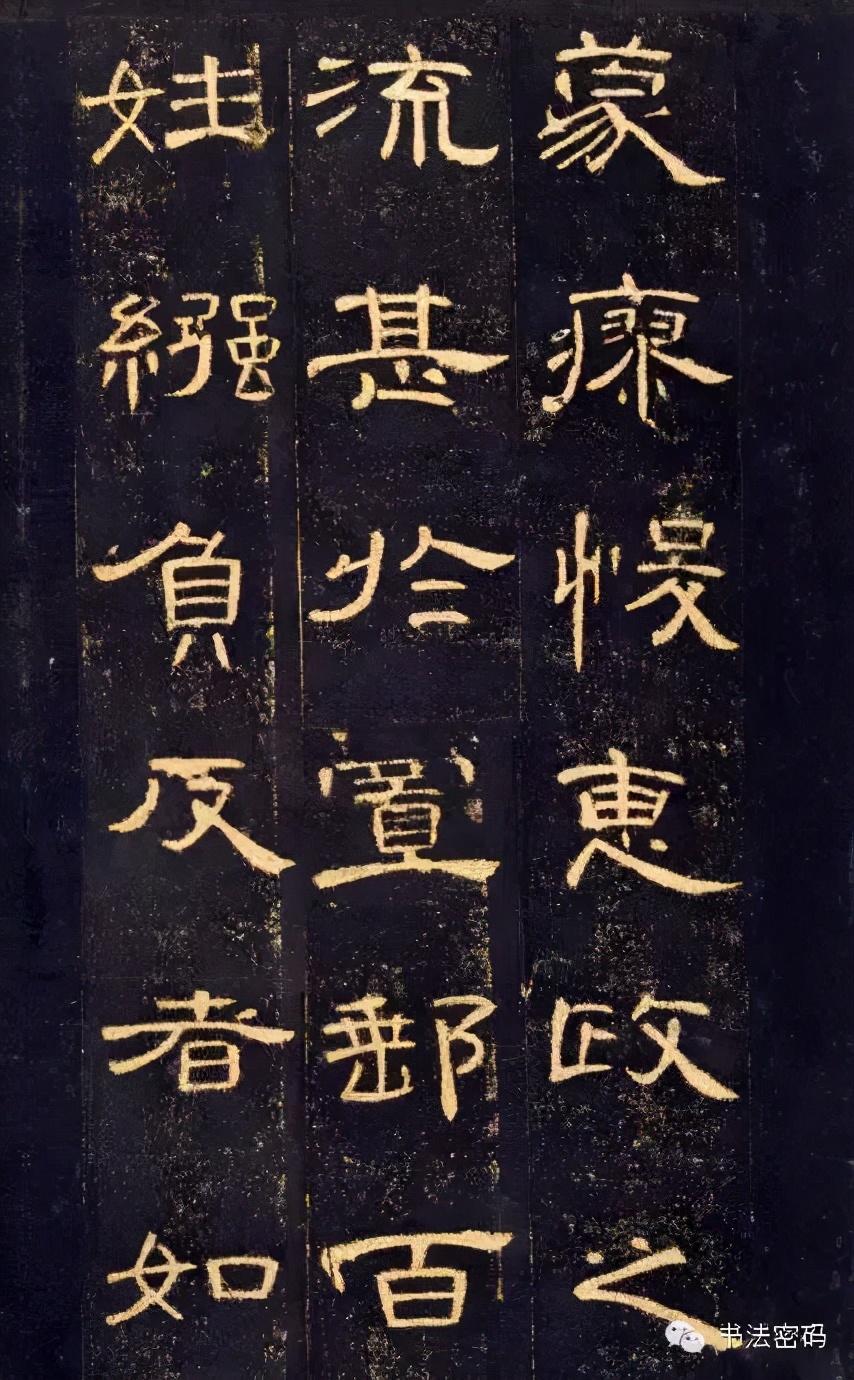 蒙瘳悛惠政之
流甚於置郵百
姓繦負反者如
书法密码